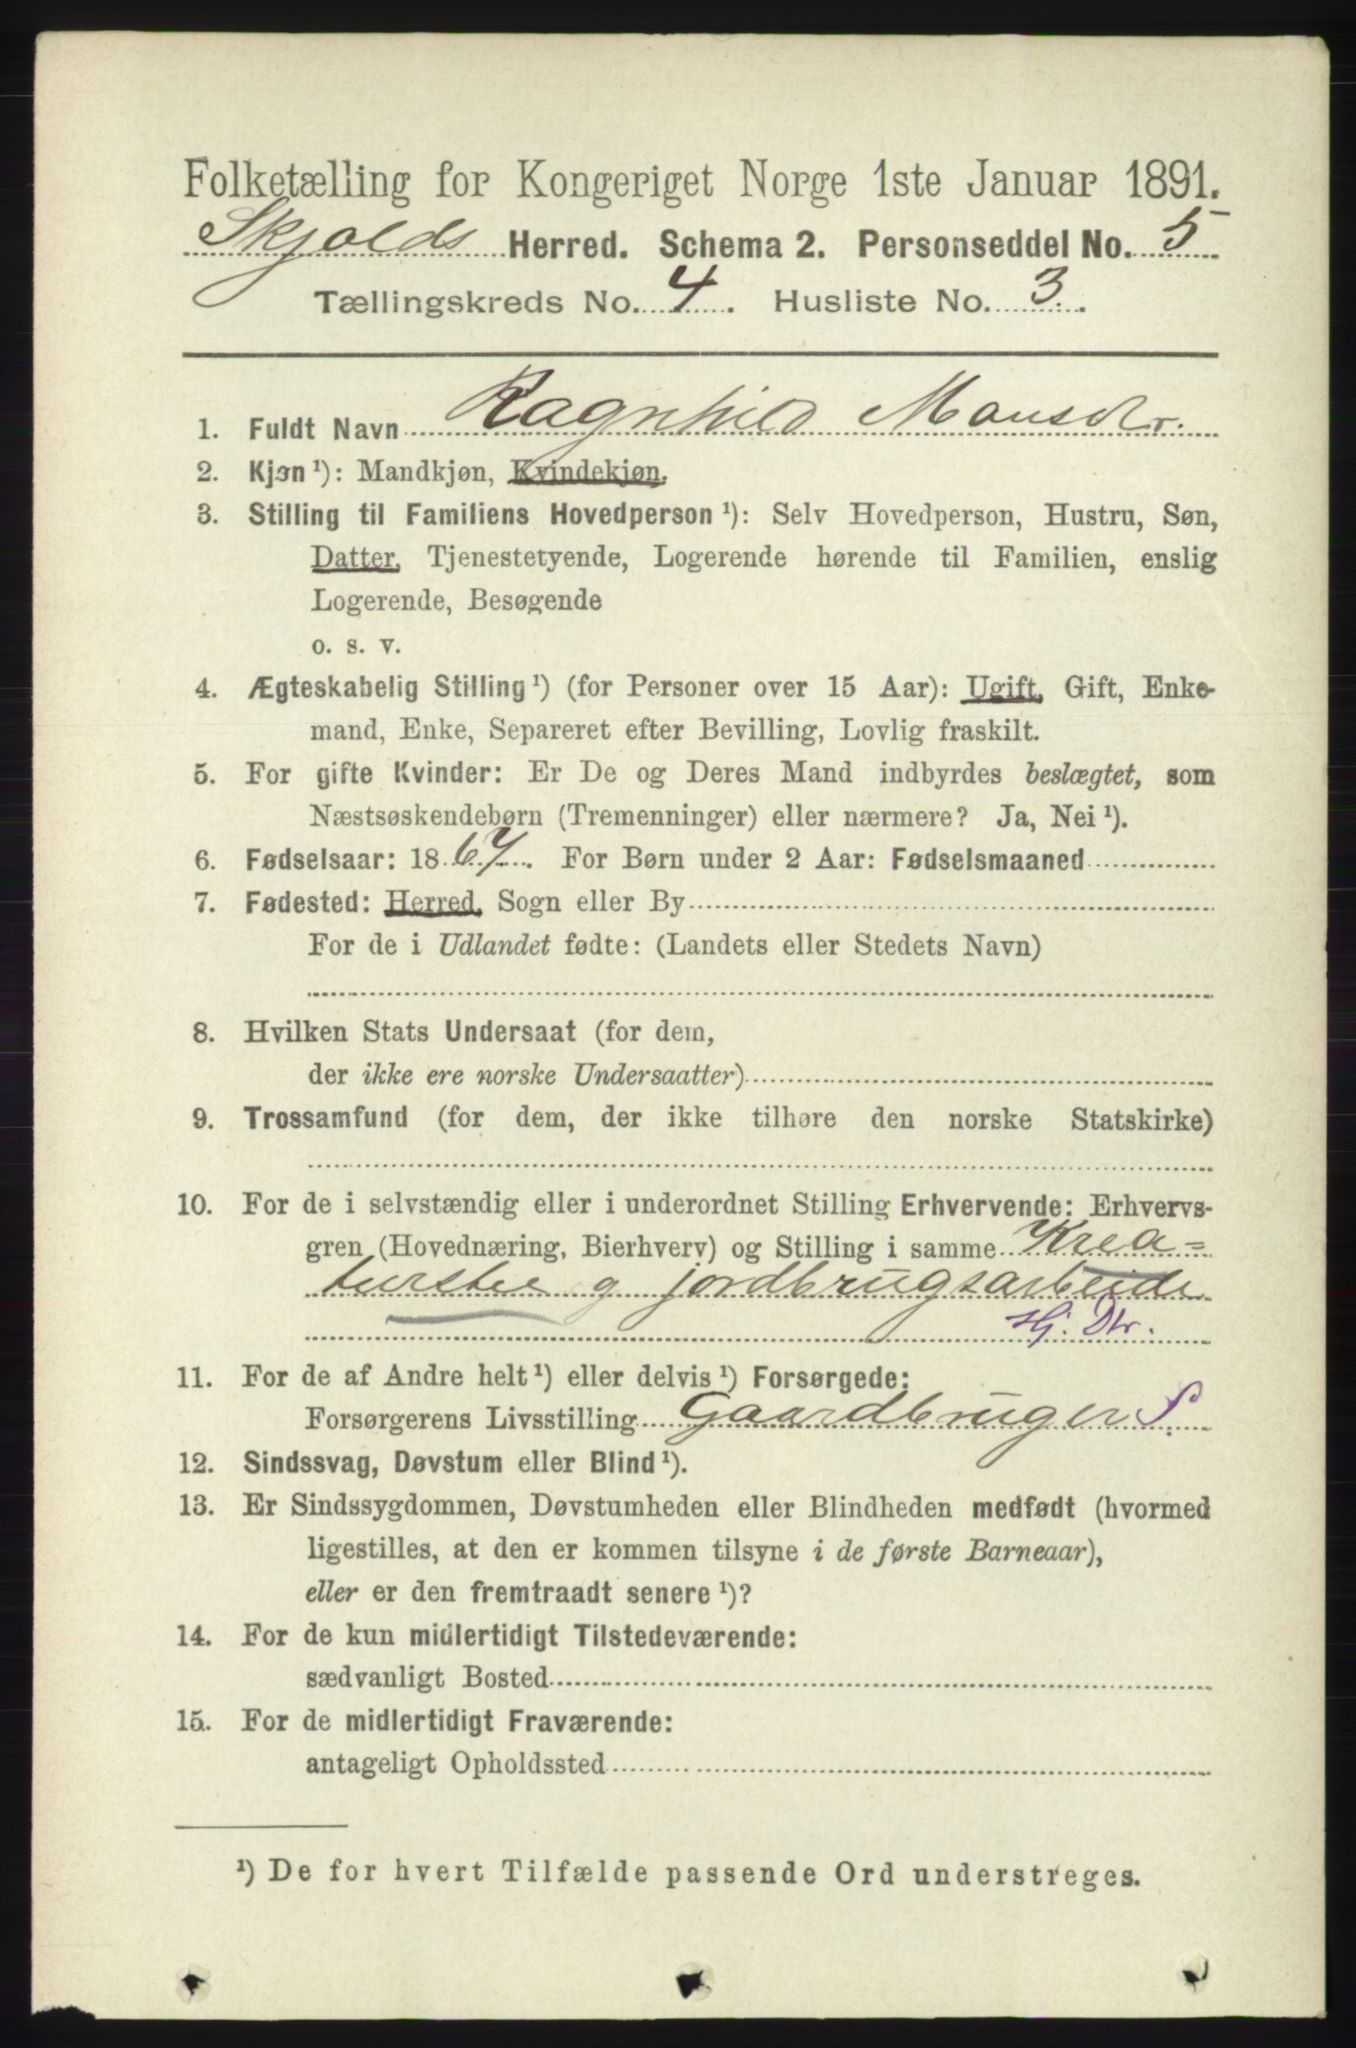 Folketælling for Kongeriget Norge 1ste Januar 1891.
Skjolds Herred. Schema 2. Personseddel No. 5
Tællingskreds No. 4. Husliste No. 3.
1. Fuldt Navn Ragnhild Mansdtr.
2. Kjøn ¹): Mandkjøn, Kvindekjøn.
3. Stilling til Familiens Hovedperson ¹): Selv Hovedperson, Hustru, Søn,
Datter, Tjenestetyende, Logerende hørende til Familien, enslig
Logerende, Besøgende
o. s. v.
4. Ægteskabelig Stilling ¹) (for Personer over 15 Aar): Ugift, Gift, Enke-
mand, Enke, Separeret efter Bevilling, Lovlig fraskilt.
5. For gifte Kvinder: Er De og Deres Mand indbyrdes beslægtet, som
Næstsøskendebørn (Tremenninger) eller nærmere? Ja, Nei ¹).
6. Fødselsaar: 1867. For Børn under 2 Aar: Fødselsmaaned
7. Fødested: Herred, Sogn eller By
For de i Udlandet fødte: (Landets eller Stedets Navn)
8. Hvilken Stats Undersaat (for dem,
der ikke ere norske Undersaatter)
9. Trossamfund (for dem, der ikke tilhøre den norske Statskirke)
10. For de i selvstændig eller i underordnet Stilling Erhvervende: Erhvervs-
gren (Hovednæring, Bierhverv) og Stilling i samme Krea-
turstel g jordbrugsarbeide
Hj. Dtr.
11. For de af Andre helt ¹) eller delvis ¹) Forsørgede:
Forsørgerens Livsstilling Gaardbruger S.
12. Sindssvag, Døvstum eller Blind ¹).
13. Er Sindssygdommen, Døvstumheden eller Blindheden medfødt (hvormed
ligestilles, at den er kommen tilsyne i de første Barneaar),
eller er den fremtraadt senere ¹)?
14. For de kun midlertidigt Tilstedeværende:
sædvanligt Bosted
15. For de midlertidigt Fraværende:
antageligt Opholdssted
¹) De for hvert Tilfælde passende Ord understreges.